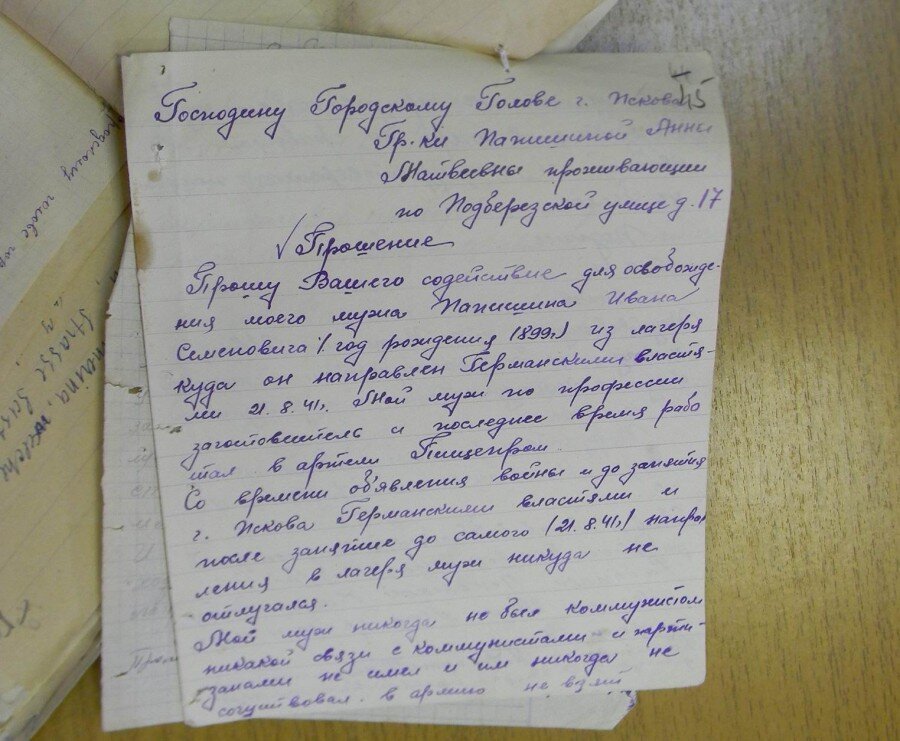 115
Господину Городскому Голове г. Пскова
Гр-ки Папишиной Анны
Матвеевны проживающии
по Подберезской улице д. 17
Прошение
Прошу Вашего содействие для освобожде-
ния моего мужа Папишина Ивана
Семеновича /. год рождения 1899г/ из лагеря
куда он направлен Германскими властя-
ми 21.8.41г. Мой муж по профессии
заготовитель и последнее время рабо
тал в артели Пищепром.
Со времени об'явления войны и до занятия
г. Пскова Германскими властями и
после занятие до самого /21.8.41г/ направ
ления в лагеря муж никуда не
отлучался.
Мой муж никогда не был коммунистом
никакой связи с коммунистами и парти-
занами не имел и им никогда не
сочуствовал. в армию не взят
strasse